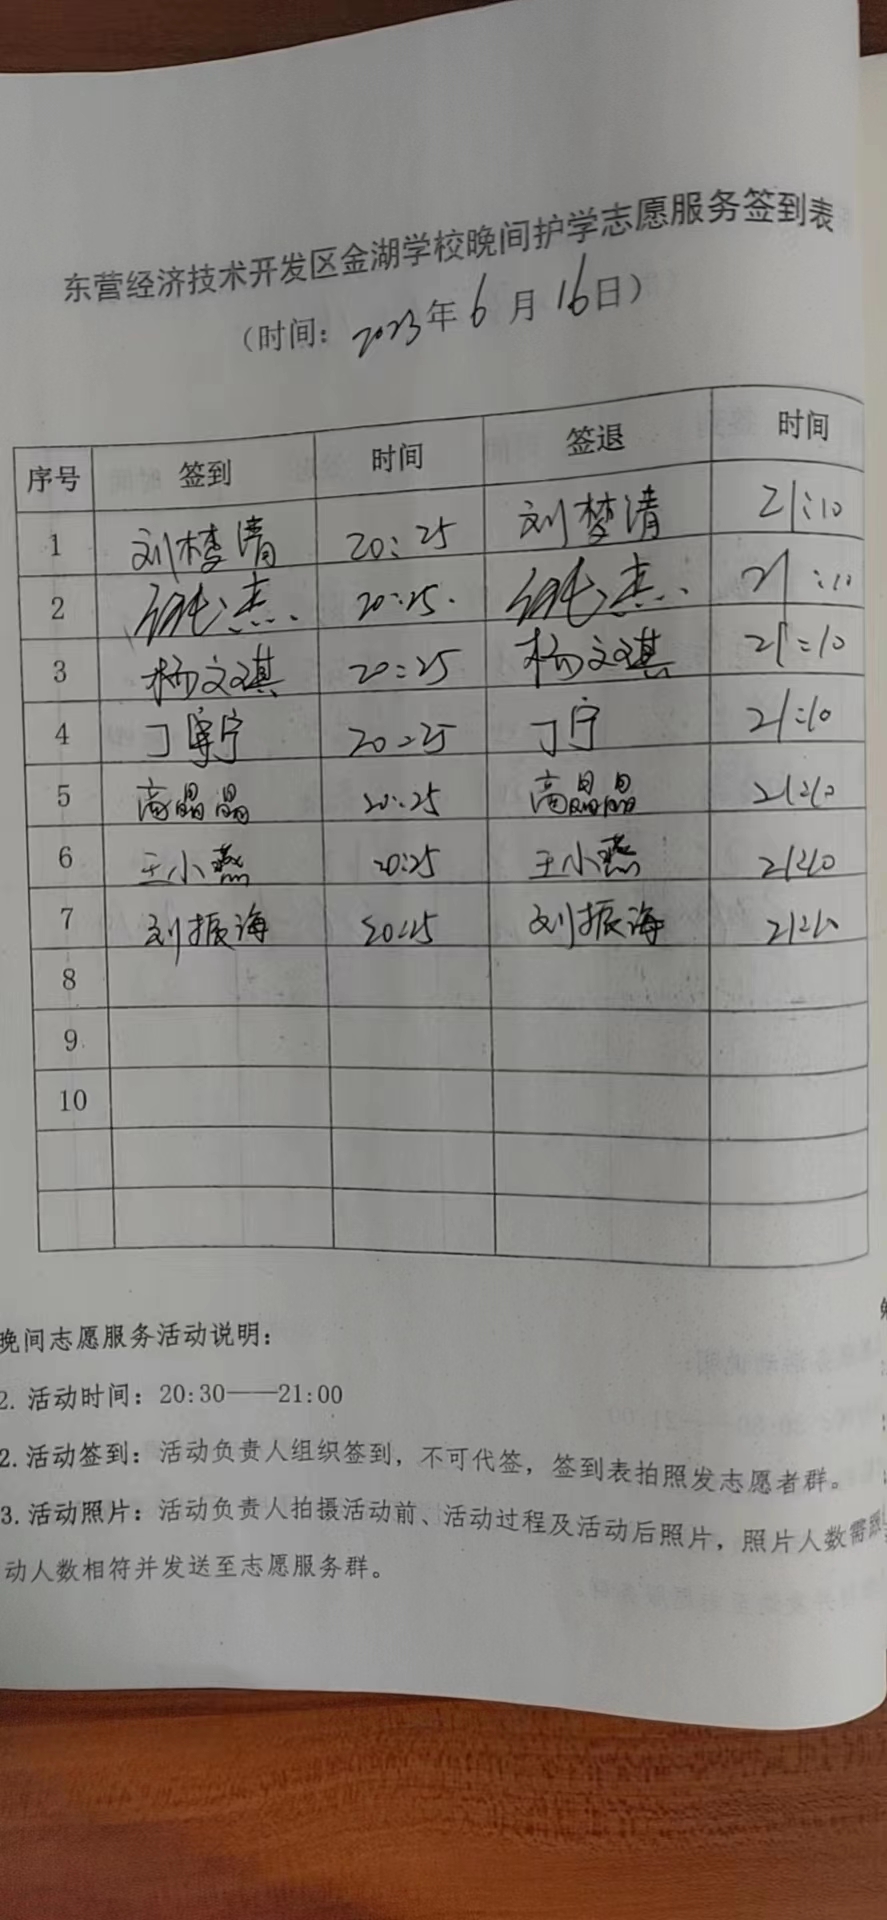 东营经济技术开发区金湖学校晚间护学志愿服务签到表
（时间：2023年6月16日）
序号 签到 时间 签退 时间
1 刘梦清 20:25 刘梦清 21:10
2 20:25 21:10
3 杨文琪 20:25 杨文琪 21:10
4 丁宁 20:25 丁宁 21:10
5 高晶晶 20:25 高晶晶 21:10
6 王小燕 20:25 王小燕 21:10
7 刘振海 20:25 刘振海 21:10
8
9
10
晚间志愿服务活动说明：
2. 活动时间：20:30——21:00
2. 活动签到：活动负责人组织签到，不可代签，签到表拍照发志愿者群。
3. 活动照片：活动负责人拍摄活动前、活动过程及活动后照片，照片人数需跟
动人数相符并发送至志愿服务群。